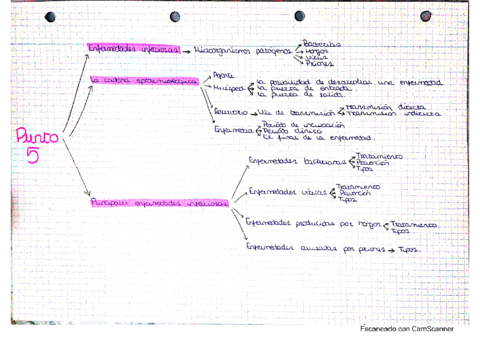 Enfermedades infecciosas → Microorganismos patógenos
Bacterias
Hongos
Virus
Priones
La cadena epidemiológica
Agente
Huésped
La posibilidad de desarrollar una enfermedad
La puerta de entrada
La puerta de salida
Reservorio → Vía de transmisión
Transmisión directa
Transmisión indirecta
Enfermedad
Período de incubación
Período clínico
El final de la enfermedad.
Punto
5
Principales enfermedades infecciosas
Enfermedades bacterianas
Tratamiento
Prevención
Tipos
Enfermedades víricas
Tratamiento
Prevención
Tipos
Enfermedades producidas por hongos
Tratamiento.
Tipos.
Enfermedades causadas por priones → Tipos.
Escaneado con CamScanner